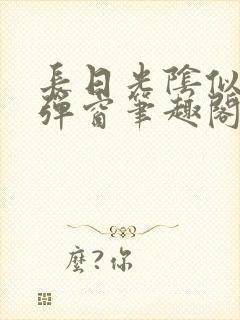 長日光陰似
彈窗筆趣閣
麼?你